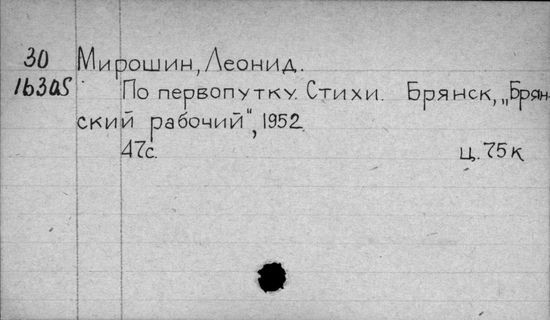 30 Мирошин, Леонид.
1630S По первопутку. Стихи. Брянск, „Брян-
ский рабочий", 1952.
47с. ц. 75к